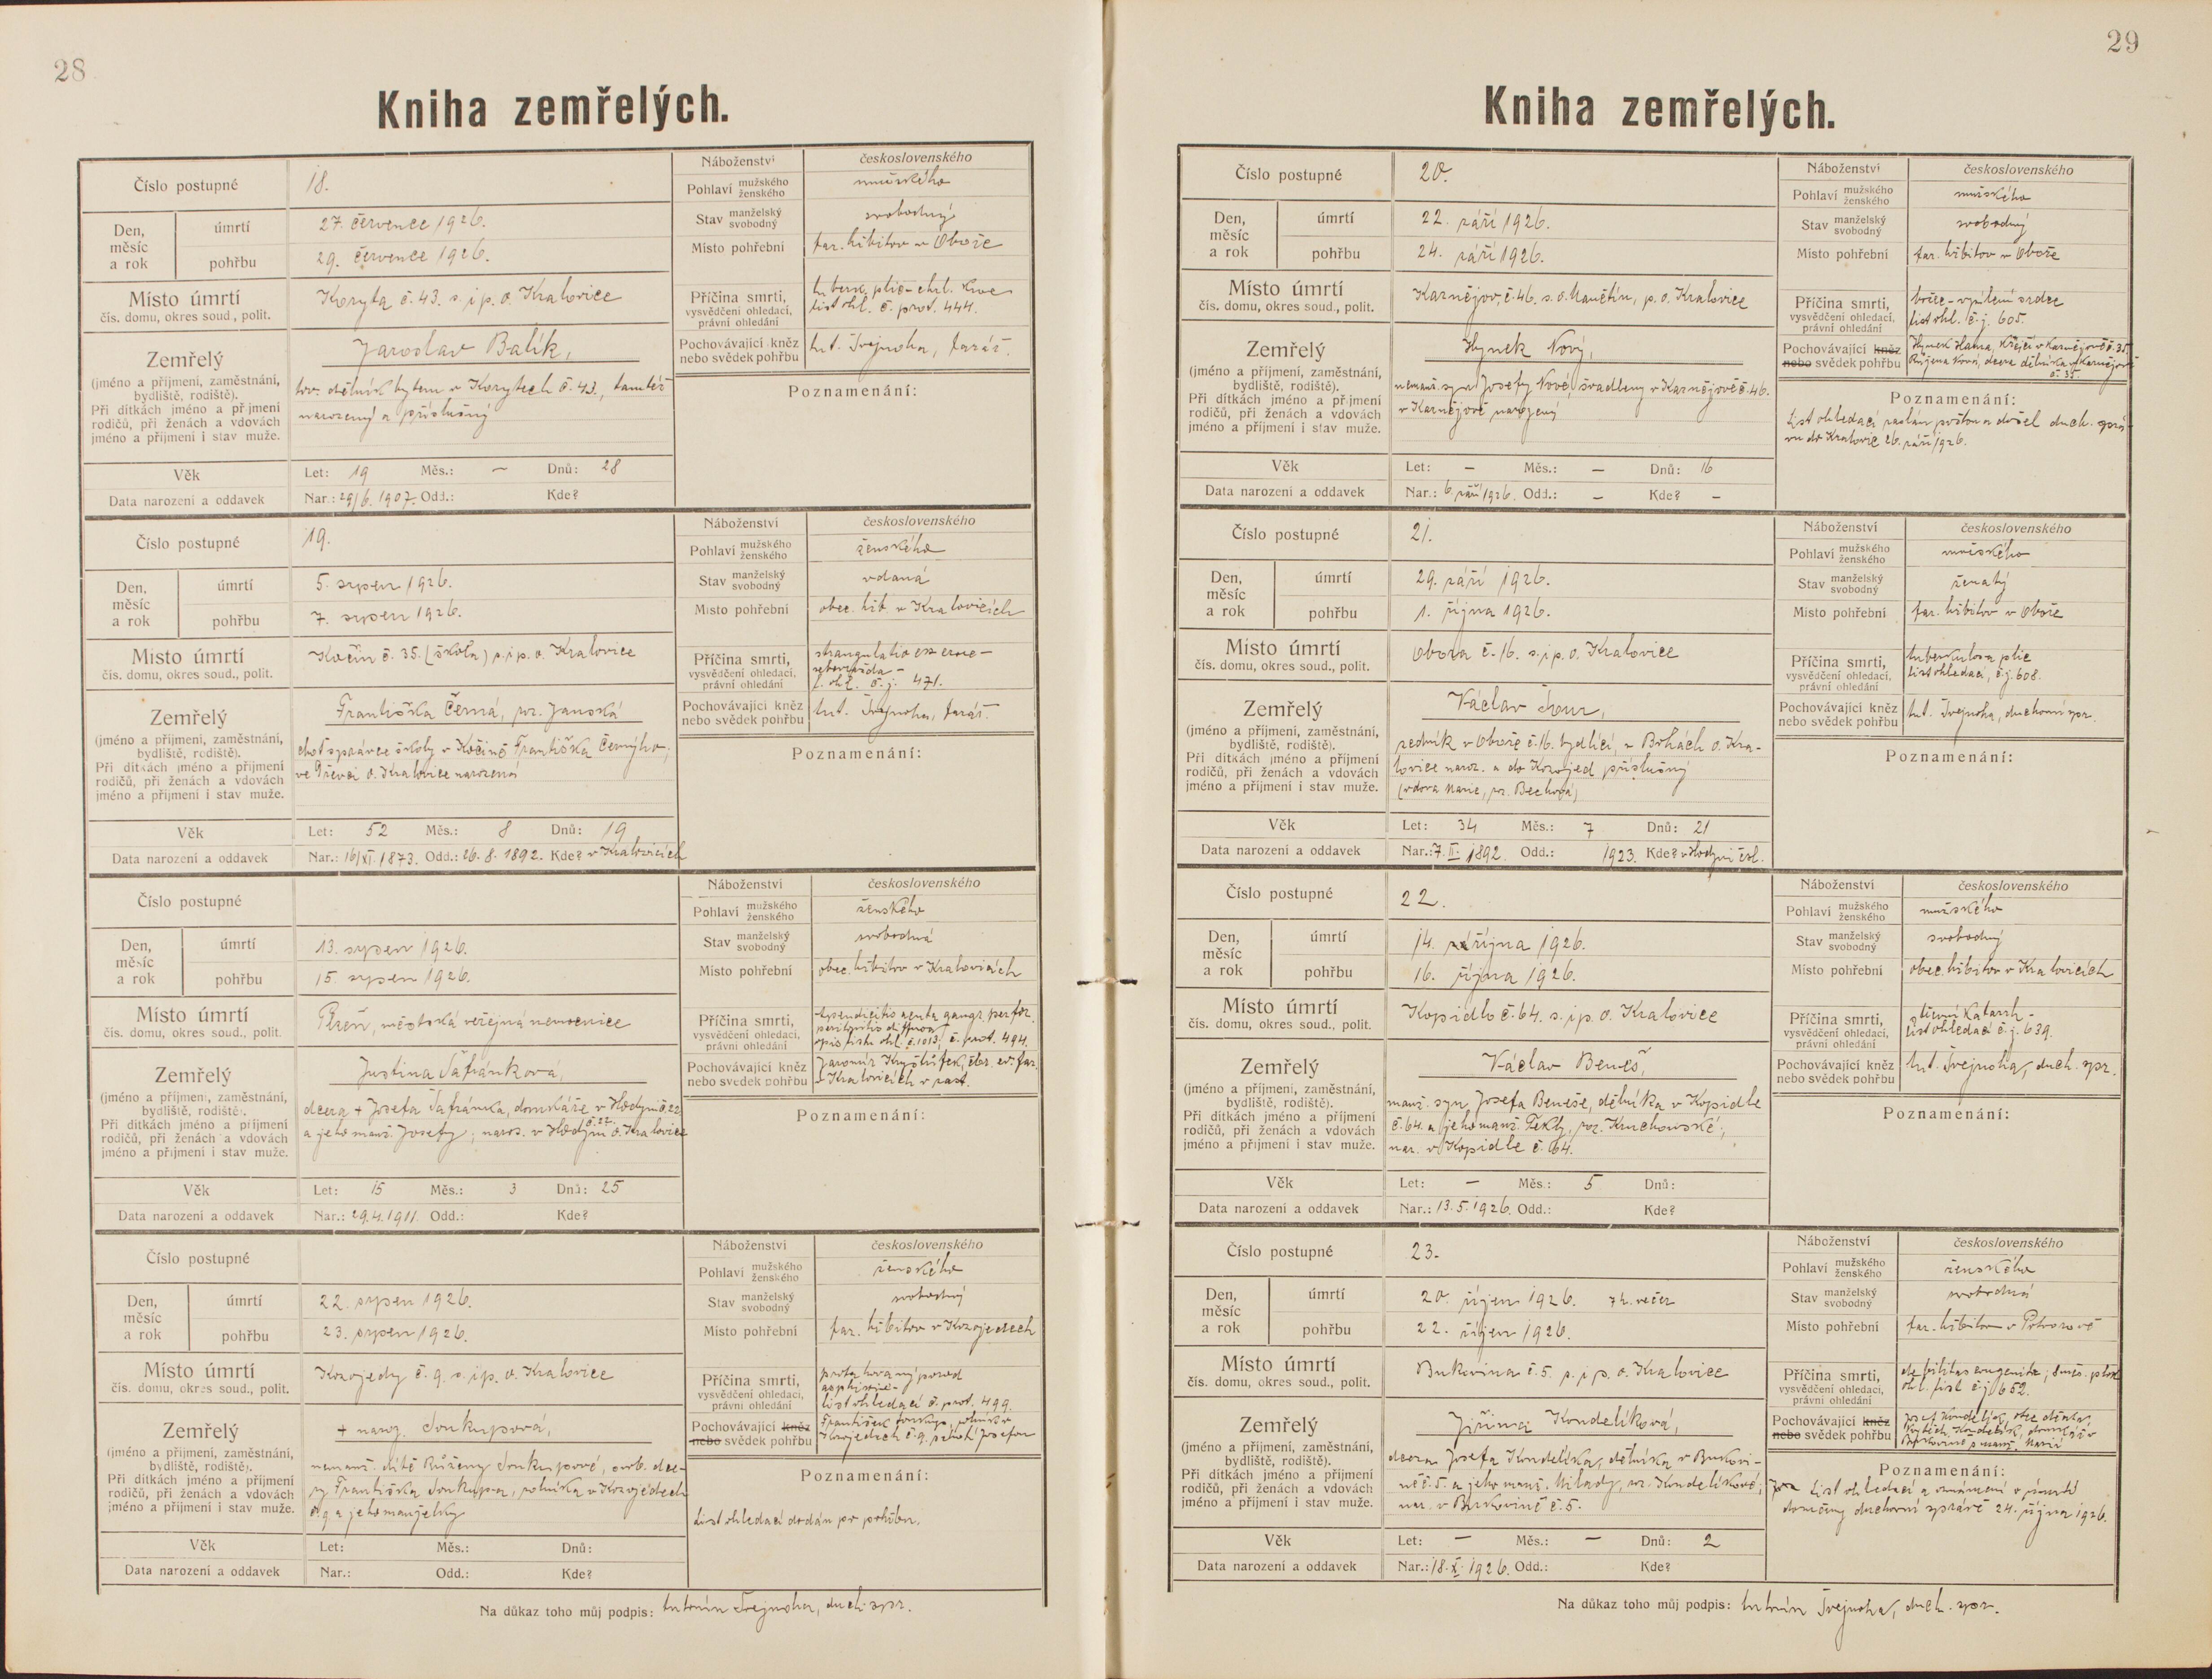 28
Kniha zemřelých.
Číslo postupné 18.
Den, měsíc a rok
úmrtí 27. července 1926.
pohřbu 29. července 1926.
Místo úmrtí
čís. domu, okres soud., polit.
Koryta č. 43. s. i p. o. Kralovice
Zemřelý
(jméno a příjmení, zaměstnání,
bydliště, rodiště).
Při dítkách jméno a příjmení
rodičů, při ženách a vdovách
jméno a příjmení i stav muže.
Jaroslav Balík,
tov. dělník bytem v Korytech č. 43., tamtéž
narozený a příslušný
Věk Let: 19 Měs.: – Dnů: 28
Data narození a oddavek Nar.: 29/6. 1907. Odd.: Kde?
Náboženství československého
Pohlaví mužského ženského mužského
Stav manželský svobodný svobodný
Místo pohřební far. hřbitov v Oboře
Příčina smrti,
vysvědčení ohledací,
právní ohledání
tuberk. plic – chrl. krve
list ohl. č. prot. 444.
Pochovávající kněz
nebo svědek pohřbu
Ant. Švejnoha, farář.
Poznamenání:
Číslo postupné 19.
Den, měsíc a rok
úmrtí 5. srpen 1926.
pohřbu 7. srpen 1926.
Místo úmrtí
čís. domu, okres soud., polit.
Kočín č. 35. (škola) s. i p. o. Kralovice
Zemřelý
(jméno a příjmení, zaměstnání,
bydliště, rodiště).
Při dítkách jméno a příjmení
rodičů, při ženách a vdovách
jméno a příjmení i stav muže.
Františka Černá, roz. Janská
choť správce školy v Kočíně Františka Černýho,
ve o. Kralovice narozená
Věk Let: 52 Měs.: 8 Dnů: 19
Data narození a oddavek Nar.: 16/XI. 1873. Odd.: 26. 8. 1892. Kde? v Kralovicích
Náboženství československého
Pohlaví mužského ženského ženského
Stav manželský svobodný vdaná
Místo pohřební obec. hřb. v Kralovicích
Příčina smrti,
vysvědčení ohledací,
právní ohledání
strangulatio –
sebevražda –
l. ohl. č. j. 471.
Pochovávající kněz
nebo svědek pohřbu
Ant. Švejnoha, farář.
Poznamenání:
Číslo postupné
Den, měsíc a rok
úmrtí 13. srpen 1926.
pohřbu 15. srpen 1926.
Místo úmrtí
čís. domu, okres soud., polit.
Plzeň, městská veřejná nemocnice
Zemřelý
(jméno a příjmení, zaměstnání,
bydliště, rodiště).
Při dítkách jméno a příjmení
rodičů, při ženách a vdovách
jméno a příjmení i stav muže.
Justina Šafránková,
dcera + Josefa Šafránka, domkáře v Hodyni č. 22
a jeho manž. Josefy; naroz. v Hodyni č. 22. o. Kralovice
Věk Let: 15 Měs.: 3 Dnů: 25
Data narození a oddavek Nar.: 29. 4. 1911. Odd.: Kde?
Náboženství československého
Pohlaví mužského ženského ženského
Stav manželský svobodný svobodná
Místo pohřební obec. hřbitov v Kralovicích
Příčina smrti,
vysvědčení ohledací,
právní ohledání
Apendicitis acuta gangr. perfor.
peritonitis diffusa
opis listu ohl. č. 1013, č. prot. 494.
Pochovávající kněz
nebo svědek pohřbu
Jaromír far.
v Kralovicích v zast.
Poznamenání:
Číslo postupné
Den, měsíc a rok
úmrtí 22. srpen 1926.
pohřbu 23. srpen 1926.
Místo úmrtí
čís. domu, okres soud., polit.
Kozojedy č. 9. s. i p. o. Kralovice
Zemřelý
(jméno a příjmení, zaměstnání,
bydliště, rodiště).
Při dítkách jméno a příjmení
rodičů, při ženách a vdovách
jméno a příjmení i stav muže.
+ naroz. Soukupová,
nemanž. dítě Růženy Soukupové, svob. dce-
ry Františka Soukupa, rolníka v Kozojedech
č. 9 a jeho manželky
Věk Let: Měs.: Dnů:
Data narození a oddavek Nar.: Odd.: Kde?
Náboženství československého
Pohlaví mužského ženského ženského
Stav manželský svobodný svobodný
Místo pohřební far. hřbitov v Kozojedech
Příčina smrti,
vysvědčení ohledací,
právní ohledání
protahovaný porod
asphixie –
list ohledací č. prot. 499.
Pochovávající kněz
nebo svědek pohřbu
František Soukup, rolník v
Kozojedech č. 9. s chotí Josefou
Poznamenání:
List ohledací dodán po pohřbu.
Na důkaz toho můj podpis: Antonín Švejnoha, duch. spr.
29
Kniha zemřelých.
Číslo postupné 20.
Den, měsíc a rok
úmrtí 22. září 1926.
pohřbu 24. září 1926.
Místo úmrtí
čís. domu, okres soud., polit.
Karnějov, č. 46. s. o. Manětín, p. o. Kralovice
Zemřelý
(jméno a příjmení, zaměstnání,
bydliště, rodiště).
Při dítkách jméno a příjmení
rodičů, při ženách a vdovách
jméno a příjmení i stav muže.
Hynek Nový,
nemanž. syn Josefy Nové, švadleny v Karnějově č. 46.
v Karnějově narozený
Věk Let: – Měs.: – Dnů: 16
Data narození a oddavek Nar.: 6. září 1926. Odd.: – Kde? –
Náboženství československého
Pohlaví mužského ženského mužského
Stav manželský svobodný svobodný
Místo pohřební far. hřbitov v Oboře
Příčina smrti,
vysvědčení ohledací,
právní ohledání
srdce
list ohl. č. j. 605.
Pochovávající kněz
nebo svědek pohřbu
Hynek Hama, krejčí v Karnějově č. 35.
Růžena Nová, dcera dělníka v Karnějově
č. 35.
Poznamenání:
List ohledací zaslán poštou a došel duch. sprá-
vu do Kralovic 26. září 1926.
Číslo postupné 21.
Den, měsíc a rok
úmrtí 29. září 1926.
pohřbu 1. října 1926.
Místo úmrtí
čís. domu, okres soud., polit.
Obora č. 16. s. i p. o. Kralovice
Zemřelý
(jméno a příjmení, zaměstnání,
bydliště, rodiště).
Při dítkách jméno a příjmení
rodičů, při ženách a vdovách
jméno a příjmení i stav muže.
Václav
zedník v Oboře č. 16. bydlící, v Brhách o. Kra-
lovice naroz. a do Kozojed příslušný
(vdova Marie, roz. Bechová)
Věk Let: 34 Měs.: 7 Dnů: 21
Data narození a oddavek Nar.: 7. II. 1892. Odd.: 1923. Kde? v Hodyni čsl.
Náboženství československého
Pohlaví mužského ženského mužského
Stav manželský svobodný ženatý
Místo pohřební far. hřbitov v Oboře
Příčina smrti,
vysvědčení ohledací,
právní ohledání
tuberkulosa plic
list ohledací, č. j. 608.
Pochovávající kněz
nebo svědek pohřbu
Ant. Švejnoha, duchovní spr.
Poznamenání:
Číslo postupné 22.
Den, měsíc a rok
úmrtí 14. října 1926.
pohřbu 16. října 1926.
Místo úmrtí
čís. domu, okres soud., polit.
Kopidlo č. 64. s. i p. o. Kralovice
Zemřelý
(jméno a příjmení, zaměstnání,
bydliště, rodiště).
Při dítkách jméno a příjmení
rodičů, při ženách a vdovách
jméno a příjmení i stav muže.
Václav Beneš,
manž. syn Josefa Beneše, dělníka v Kopidle
č. 64. a jeho manž. Tekly, roz. Kruchovské;
nar. v Kopidle č. 64.
Věk Let: – Měs.: 5 Dnů:
Data narození a oddavek Nar.: 13. 5. 1926. Odd.: Kde?
Náboženství československého
Pohlaví mužského ženského mužského
Stav manželský svobodný svobodný
Místo pohřební obec. hřbitov v Kralovicích
Příčina smrti,
vysvědčení ohledací,
právní ohledání
střevní katarrh –
list ohledací č. j. 639.
Pochovávající kněz
nebo svědek pohřbu
Ant. Švejnoha, duch. spr.
Poznamenání:
Číslo postupné 23.
Den, měsíc a rok
úmrtí 20. říjen 1926. 7 h. večer
pohřbu 22. říjen 1926.
Místo úmrtí
čís. domu, okres soud., polit.
Bukovina č. 5. s. i p. o. Kralovice
Zemřelý
(jméno a příjmení, zaměstnání,
bydliště, rodiště).
Při dítkách jméno a příjmení
rodičů, při ženách a vdovách
jméno a příjmení i stav muže.
Jiřina Kondelíková,
dcera Josefa Kondelíka, dělníka v Bukovi-
ně č. 5. a jeho manž. Milady, roz. Kondelíkové;
nar. v Bukovině č. 5.
Věk Let: – Měs.: – Dnů: 2
Data narození a oddavek Nar.: 18. X. 1926. Odd.: Kde?
Náboženství československého
Pohlaví mužského ženského ženského
Stav manželský svobodný svobodná
Místo pohřební far. hřbitov v Potvorově
Příčina smrti,
vysvědčení ohledací,
právní ohledání
debilitas congenita, 8 měs. plod
ohl. list č. j. 652.
Pochovávající kněz
nebo svědek pohřbu
Josef Kondelík, otec dítka,
Vojtěch Kondelík, domkář v
Bukovině s manž. Marií
Poznamenání:
List ohledací a oznámení o úmrtí
doručeny duchovní správě 24. října 1926.
Na důkaz toho můj podpis: Antonín Švejnoha, duch. spr.